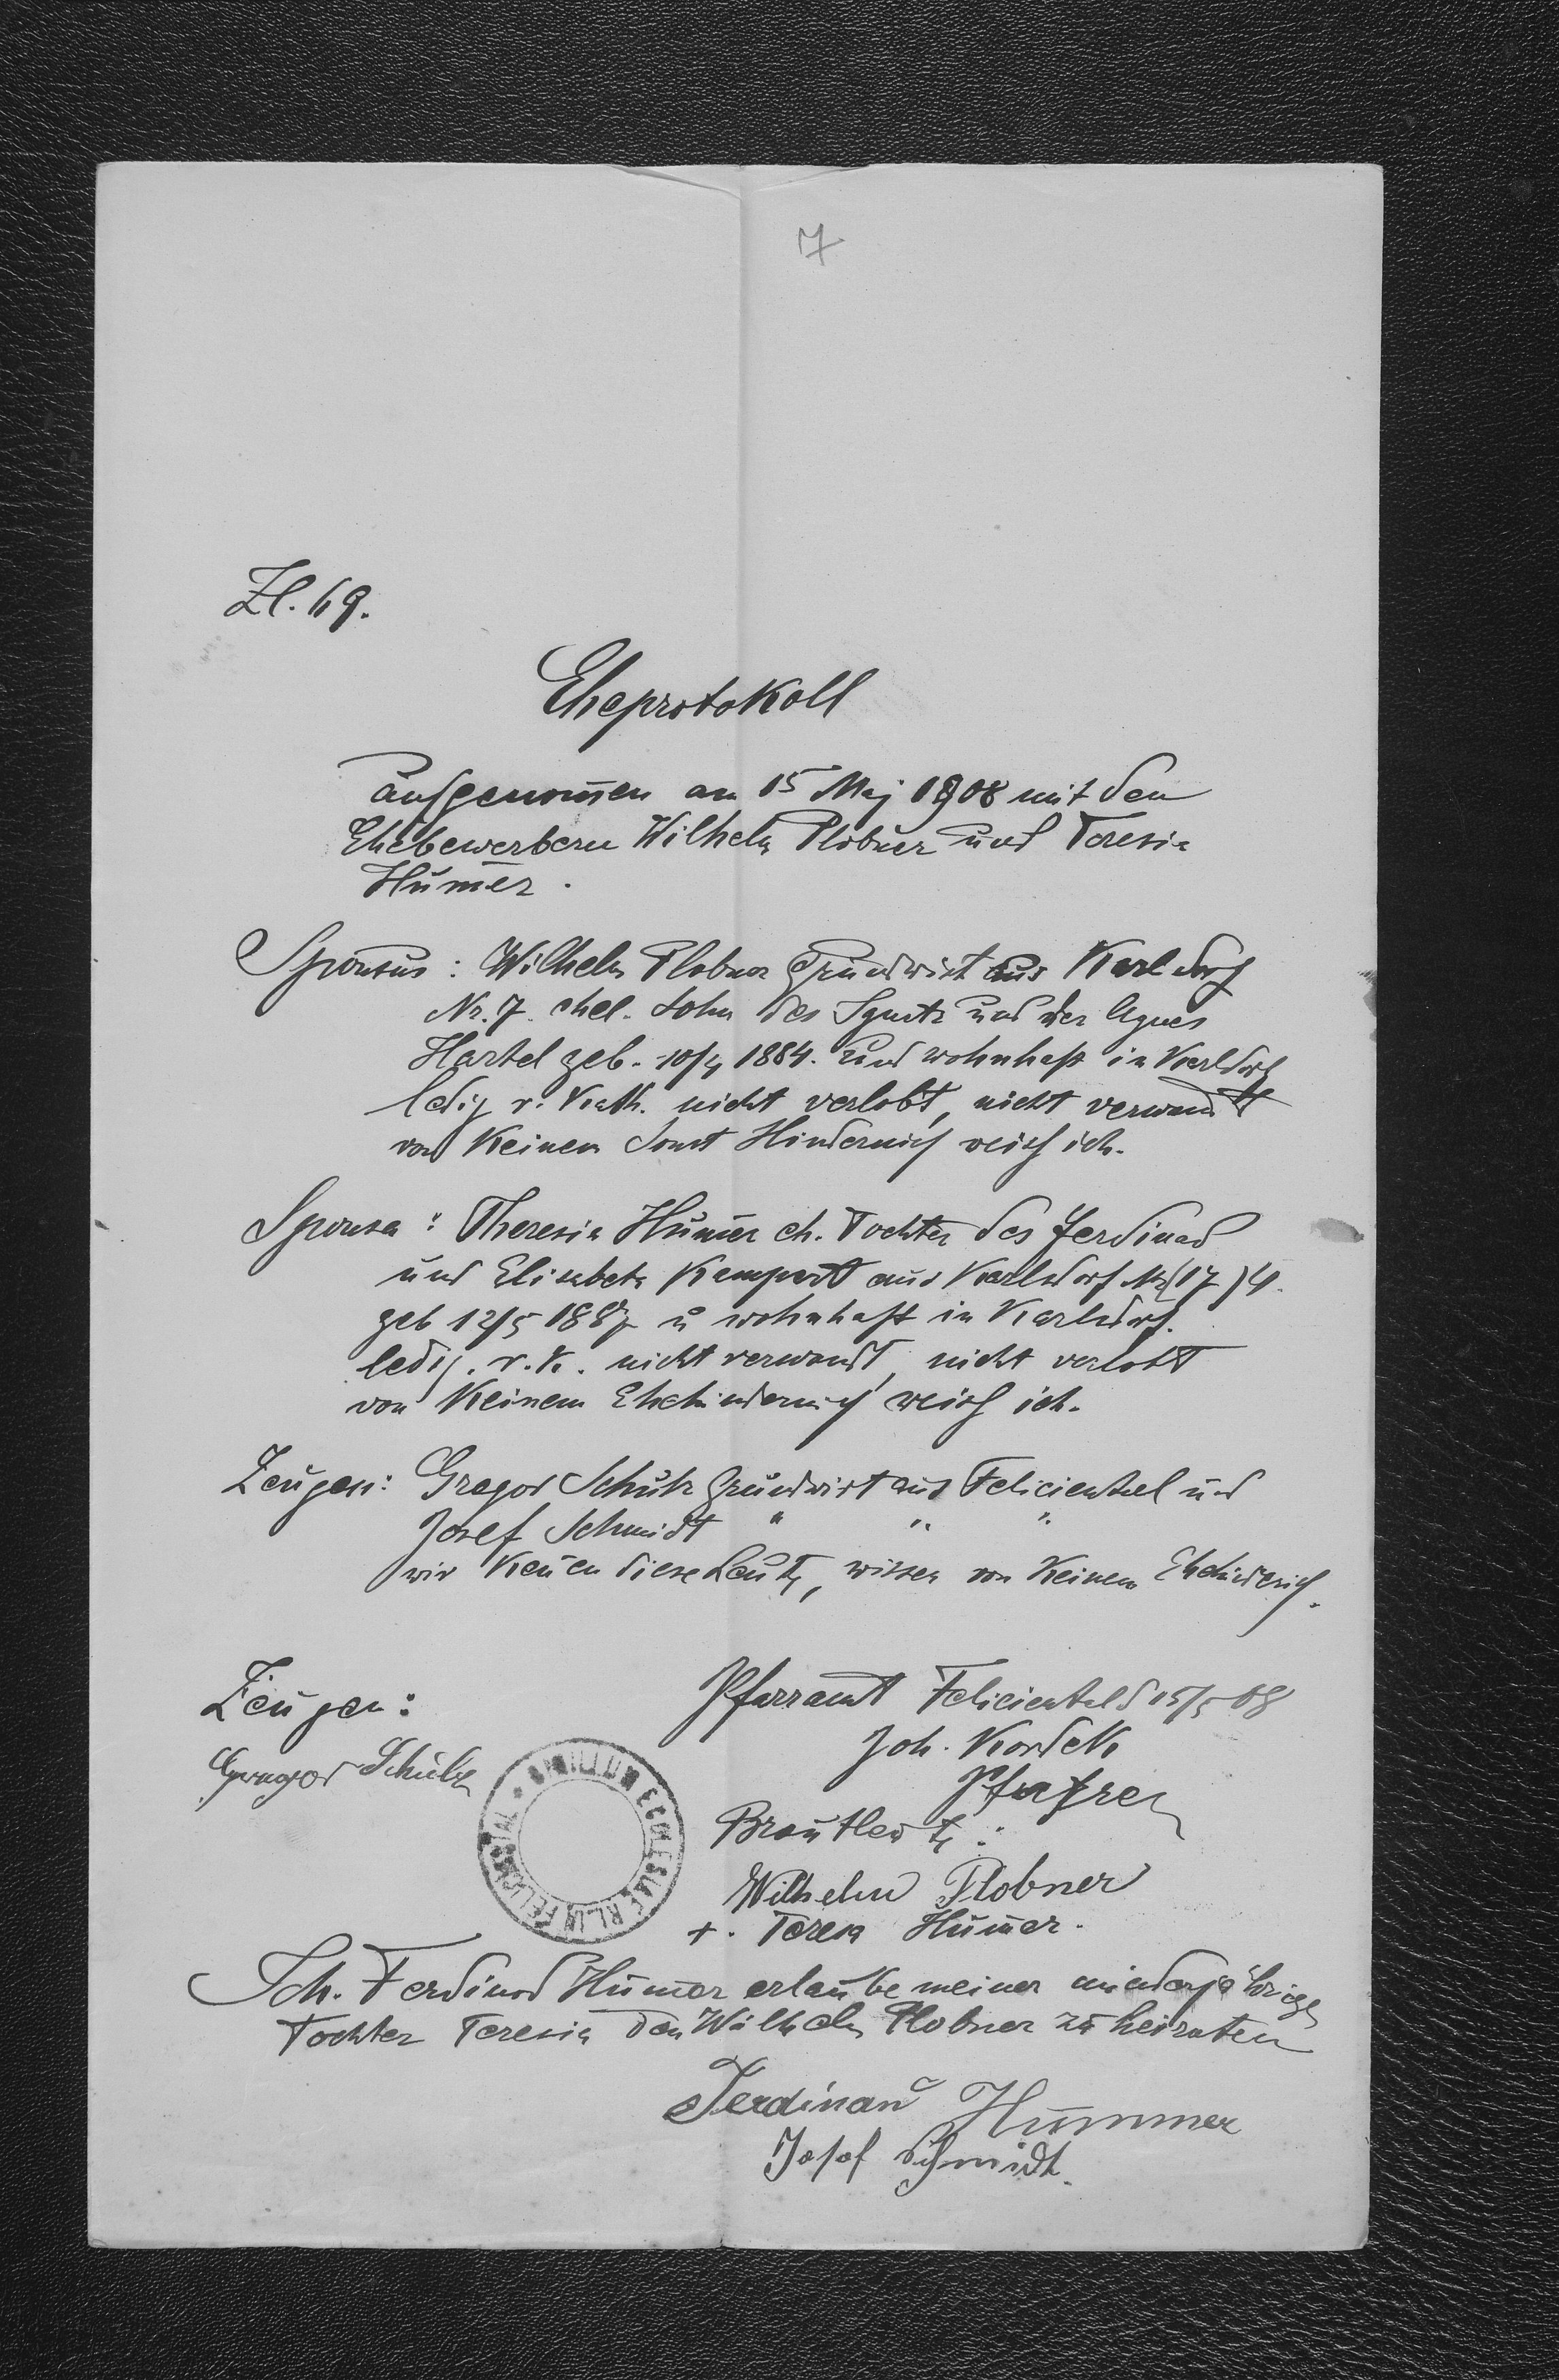 7
Zl. 69.
Eheprotokoll
aufgenom̄en am 15 Maj 1908 mit den
Ehebewerbern Wilhelm Plobner und Teresia
Hum̄er.
Sponsus: Wilhelm Plobner Grundwirt aus Karlsdorf
Nr. 7. ehel. Sohn des Ignatz und der Agnes
Hartel geb. 10/4 1884. und wohnhaft in Karlsdorf
ledig r. Kath. nicht verlobt, nicht verwandt
von Keinem sonst Hinderniß weiß ich.
Sponsa: Theresia Hum̄er eh. Tochter des Ferdinad
und Elisabeta Kampert aus Karlsdorf Nr (17) 4.
geb 12/5 1887 u wohnhaft in Karlsdorf.
ledig. r. K. nicht verwandt, nicht verlobt
von Keinem Ehehinderniß weiß ich.
Zeugen: Gregor Schulz Grundwirt aus Felicienthal und
Josef Schmidt " " "
wir Ken̄en diese Leute, wissen von Keinem Ehehinderniß.
Zeugen: Pfarramt Felicienthal d 15/5 08
Joh. Kordek
Pfarrer
Gregor Schulz
SIGILLUM ECCLESIAE R.L. IN FELICIENTHAL
Brautleute:
Wilhelm Plobner
+. Teresa Hum̄er.
Ich. Ferdinad Hum̄er erlaube meiner minderjährigen
Tochter Teresia den Wilhelm Plobner zu heiraten
Ferdinand Hummer
Josef Schmidt.